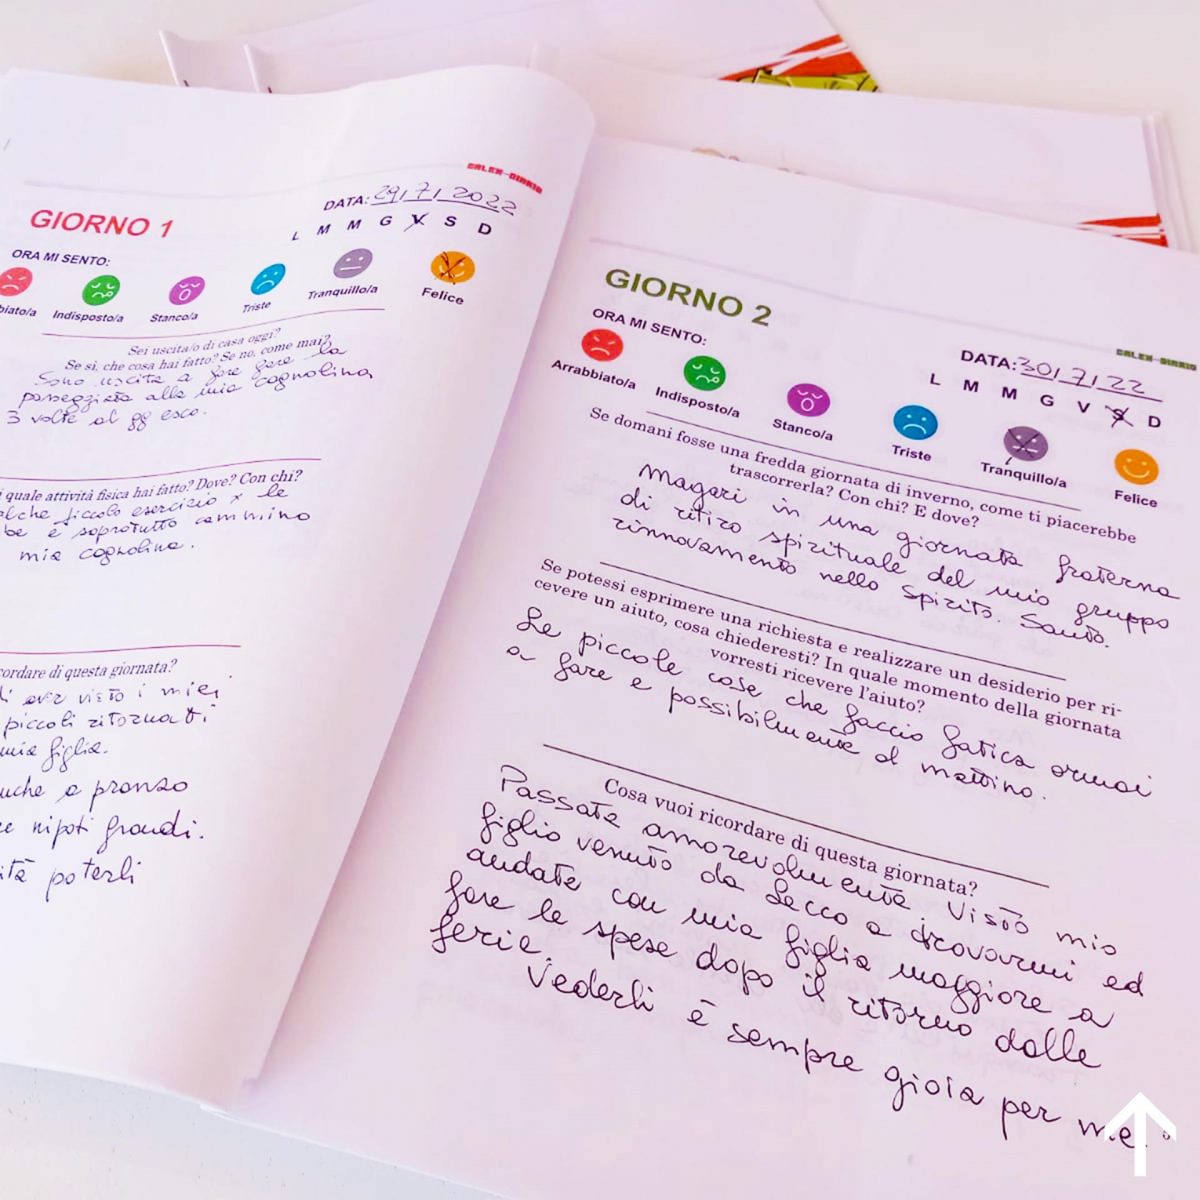 CALEN-DIARIO
GIORNO 1
DATA: 29/7/2022
L M M G V S D
ORA MI SENTO:
biato/a Indisposto/a Stanco/a Triste Tranquillo/a Felice
Sei uscita/o di casa oggi?
Se sì, che cosa hai fatto? Se no, come mai?
Sono uscita a fare fare la
passeggiata alla mia cagnolina
3 volte al gg esco.
quale attività fisica hai fatto? Dove? Con chi?
piccolo esercizio x le
be e soprotutto cammino
mia cagnolina.
cordare di questa giornata?
di aver visto i miei
piccoli ritornati
mia figlia.
a pranzo
nipoti grandi.
poterli
CALEN-DIARIO
GIORNO 2
DATA: 30/7/22
L M M G V S D
ORA MI SENTO:
Arrabbiato/a Indisposto/a Stanco/a Triste Tranquillo/a Felice
Se domani fosse una fredda giornata di inverno, come ti piacerebbe
trascorrerla? Con chi? E dove?
Magari in una giornata fraterna
di ritiro spirituale del mio gruppo
rinnovamento nello Spirito. Santo.
Se potessi esprimere una richiesta e realizzare un desiderio per ri-
cevere un aiuto, cosa chiederesti? In quale momento della giornata
vorresti ricevere l'aiuto?
Le piccole cose che faccio fatica ormai
a fare e possibilmente al mattino.
Cosa vuoi ricordare di questa giornata?
Passata amorevolmente. Visto mio
figlio venuto da Lecco a trovarmi ed
andata con mia figlia maggiore a
fare le spese dopo il ritorno dalle
ferie.
Vederli è sempre gioia per me.